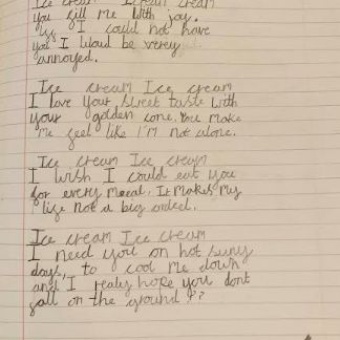 Ice cream Ice cream cream
you fill me with joy.
If I could not have
you I woud be verey
annoyed.
Ice cream Ice cream
I love your sweet taste with
your golden cone. You make
me feel like I'm not alone.
Ice cream Ice cream
I wish I could eat you
for every meal. It makes my
life not a big ordeal.
Ice cream Ice cream
I need you on hot suny
days, to cool me down
and I realy hope you dont
fall on the ground